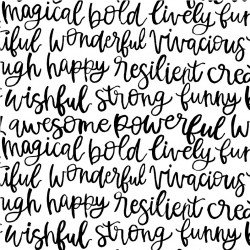 magical bold lively fun
iful wonderful vivacious
ugh happy resilient cre
wishful strong funny b
awesome powerful w
magical bold lively fun
iful wonderful vivacious
ugh happy resilient cre
wishful strong funny